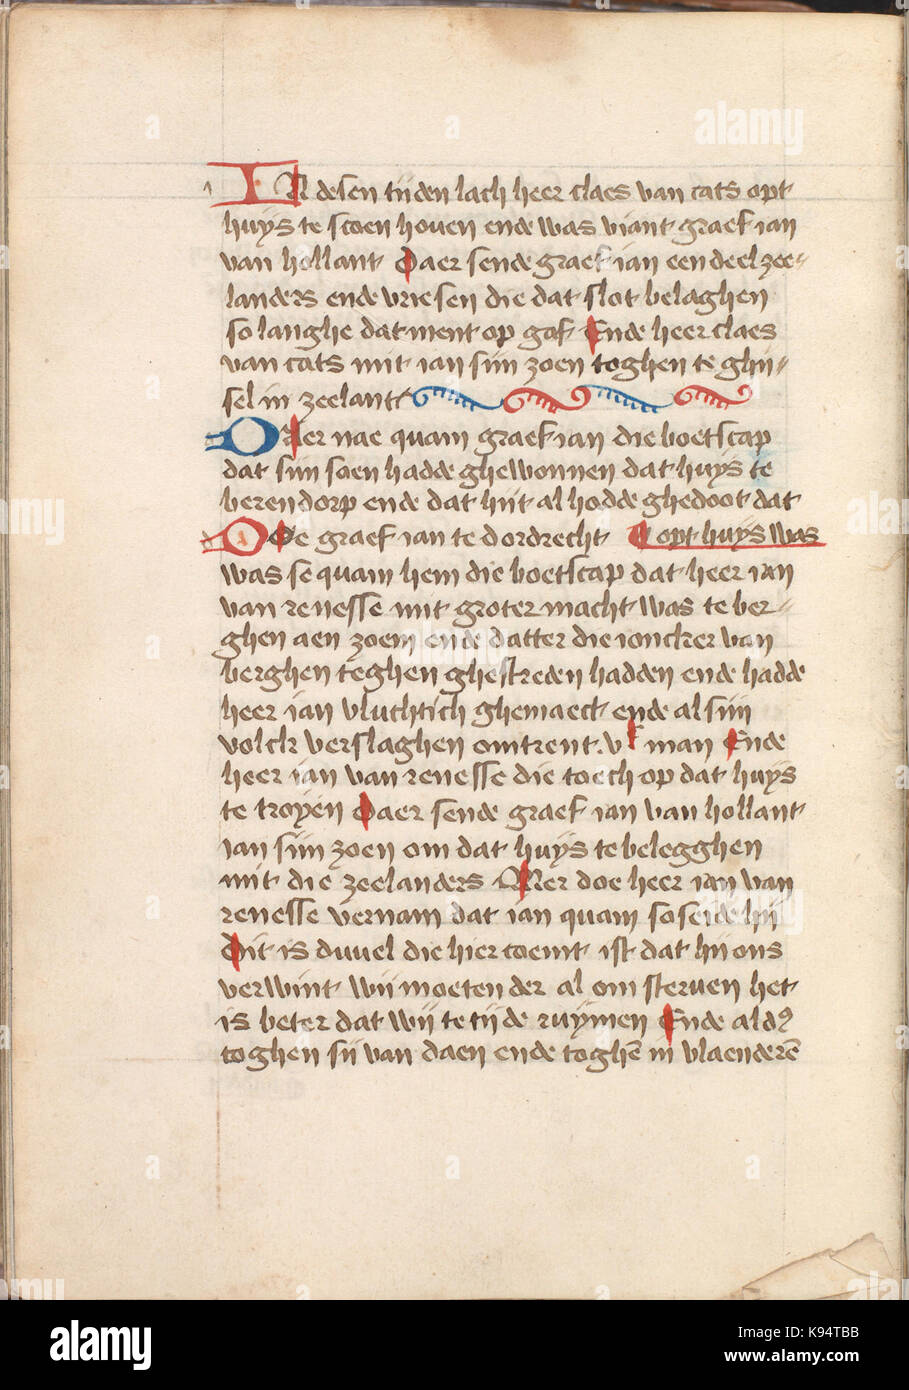 IN desen tijden lach heer claes van cats opt
huijs te scoen houen ende was viant graef ian
van hollant Daer sende graef ian een deel zee-
landers ende vriesen die dat slot belaghen
so langhe datment op gaf Ende heer claes
van cats mit ian sijn zoen toghen te ghij-
sel in zeelant
DAer nae quam graef ian die boetscap
dat sijn soen hadde ghewonnen dat huijs te
berendorp ende dat hijt al hadde ghedoot dat
DOe graef ian te dordrecht opt huijs was
was se quam hem die boetscap dat heer ian
van renesse mit groter macht was te ber-
ghen aen zoem ende datter die ioncker van
berghen teghen ghestreden hadden ende hadde
heer ian vluchtich ghemaect ende al sijn
volck verslaghen omtrent vᶜ man Ende
heer ian van renesse die toech op dat huijs
te troyen Daer sende graef ian van hollant
ian sijn zoen om dat huijs te belegghen
mit die zeelanders Mer doe heer ian van
renesse vernam dat ian quam so seide hij
Dit is duuel die hier coemt ist dat hij ons
verwint wij moeten der al om steruen het
is beter dat wij te tijde ruijmen Ende aldꝰ
toghen sij van daen ende toghē in vlaenderē
alamy
K94TBB
www.alamy.com